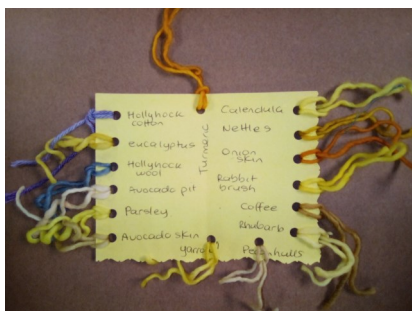 Hollyhock
cotton
eucalyptus
Hollyhock
wool
Avocado pit
Parsley
Avocado skin
yarrow
Turmeric
Calendula
Nettles
Onion
skin
Rabbit
brush
Coffee
Rhubarb